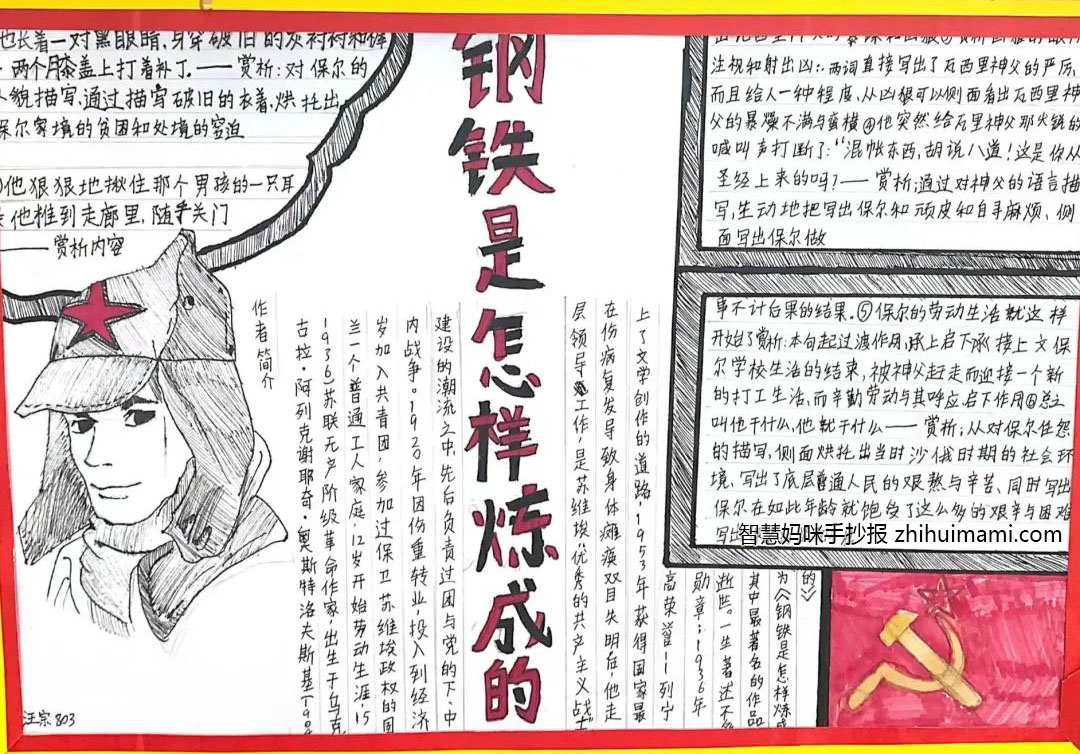 也长着一对黑眼睛,身穿破旧的灰衬衫和裤
两个膝盖上打着补丁.——赏析:对保尔的
貌描写,通过描写破旧的衣着,烘托出
保尔家境的贫困和处境的窘迫
他狠狠地揪住那个男孩的一只耳
他推到走廊里,随手关门
——赏析内容
钢铁是怎样炼成的
作者简介
古拉·阿列克谢耶奇·奥斯特洛夫斯基(190
1936)苏联无产阶级革命作家,出生于乌克
兰一个普通工人家庭 12岁开始劳动生涯,15
岁加入共青团,参加过保卫苏维埃政权的国
内战争。1920年因伤重转业,投入到经济
建设的潮流之中,先后负责过团与党的下、中
层领导工作,是苏维埃优秀的共产主义战士
在伤病复发导致身体瘫痪双目失明后,他走
上了文学创作的道路,1953年获得国家最
高荣誉11列宁
勋章;1936年
逝世。一生著述不
其中最著名的作品
为《钢铁是怎样炼成
的》
注视和射出凶:.两词直接写出了瓦西里神父的严厉,
而且给人一种程度,从凶狠可以侧面看出瓦西里神
父的暴燥不满与蛮横④他突然给瓦里神父那火锐的
喊叫声打断了:"混帐东西,胡说八道!这是你从
圣经上来的吗?——赏析;通过对神父的语言描
写,生动地把写出保尔和顽皮和自寻麻烦、侧
面写出保尔做
事不计后果的结果.⑤保尔的劳动生活就这样
开始了赏析:本句起过渡作用,承上启下承接上文保
尔学校生活的结束,被神父赶走而迎接一个新
的打工生活,而辛勤劳动与其呼应启下作用⑥总之
叫他干什么,他就干什么——赏析;从对保尔任怨
的描写,侧面烘托出当时沙俄时期的社会环
境、写出了底层普通人民的艰熬与辛苦、同时写出
保尔在如此年龄就饱受了这么多的艰辛与困难
写出
智慧妈咪手抄报 zhihuimami.com
汪宗 803